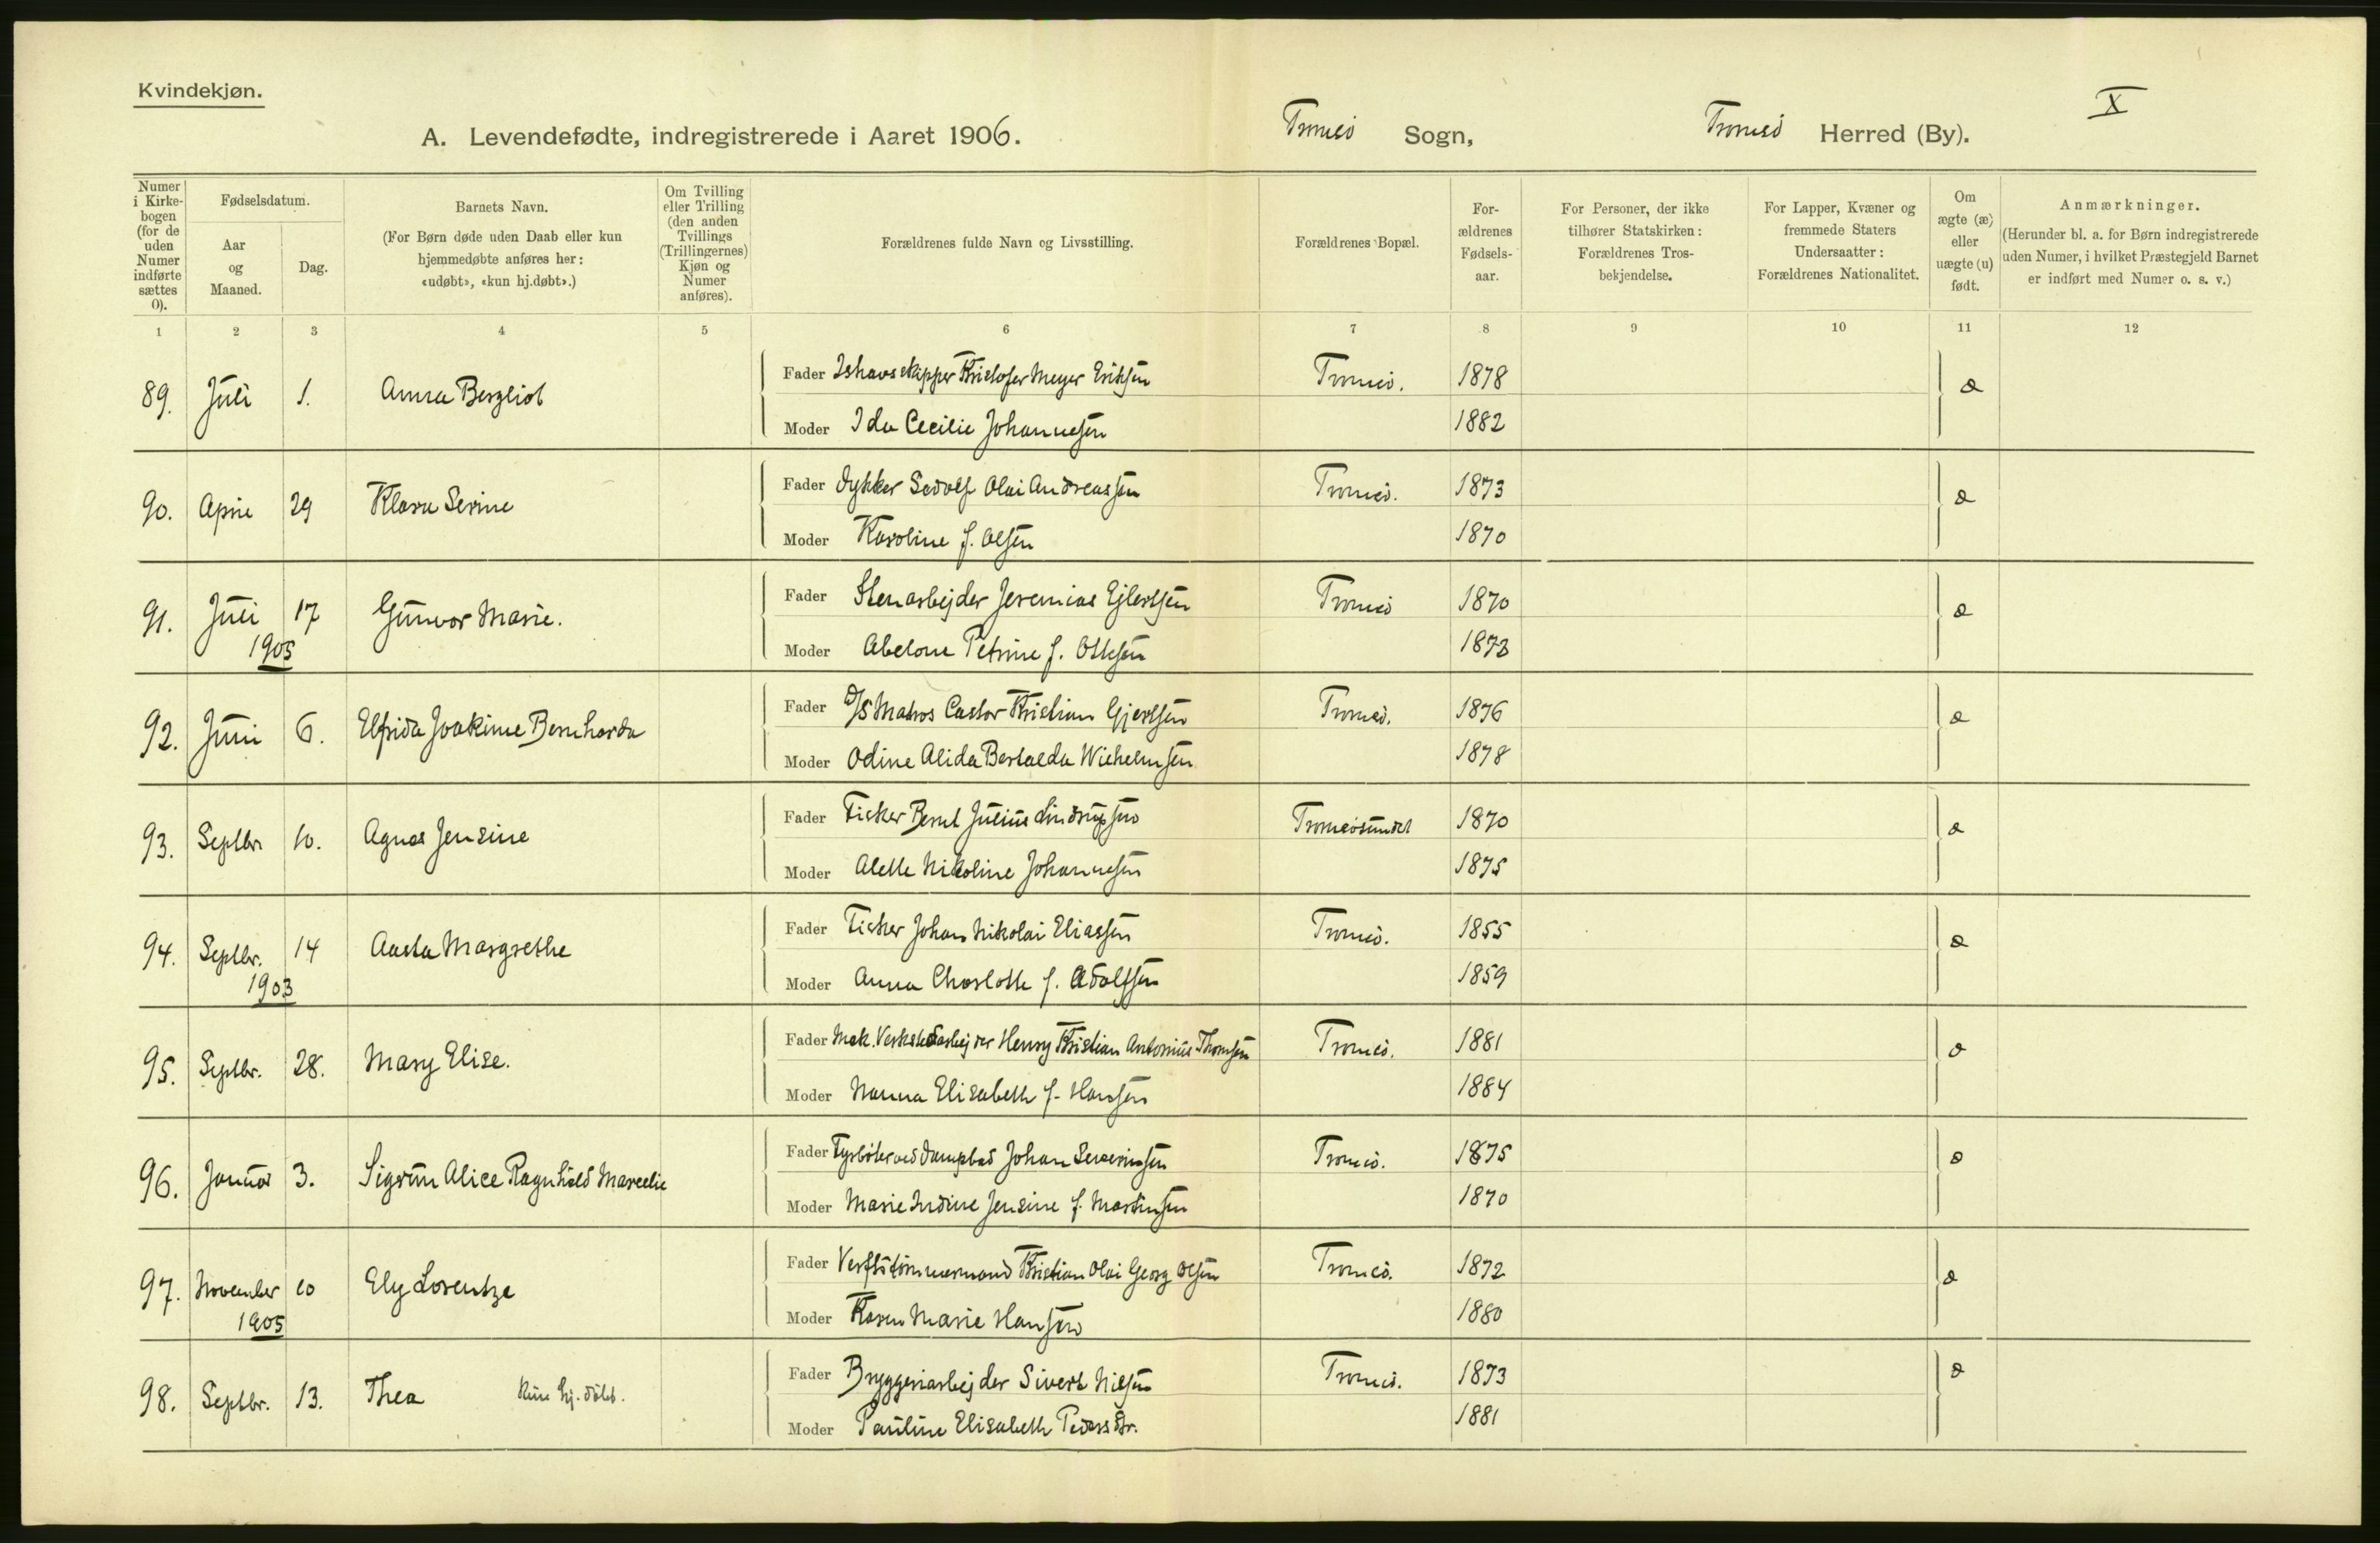 Kvindekjøn.
X
A. Levendefødte, indregistrerede i Aaret 1906. Tromsö Sogn, Tromsö Herred (By).
Numer i Kirkebogen (for de uden Numer indførte sættes 0).
Fødselsdatum.
Aar og Maaned.
Dag.
Barnets Navn.
(For Børn døde uden Daab eller kun hjemmedøbte anføres her: «udøbt», «kun hj.døbt».)
Om Tvilling eller Trilling (den anden Tvillings (Trillingernes) Kjøn og Numer anføres).
Forældrenes fulde Navn og Livsstilling.
Forældrenes Bopæl.
Forældrenes Fødselsaar.
For Personer, der ikke tilhører Statskirken: Forældrenes Trosbekjendelse.
For Lapper, Kvæner og fremmede Staters Undersaatter: Forældrenes Nationalitet.
Om ægte (æ) eller uægte (u) født.
Anmærkninger.
(Herunder bl. a. for Børn indregistrerede uden Numer, i hvilket Præstegjeld Barnet er indført med Numer o. s. v.)
1 2 3 4 5 6 7 8 9 10 11 12
89. Juli 1. Anna Bergliot Fader Ishavsskipper Kristofer Meyer Eriksen Tromsö. 1878 æ
Moder Ida Cecilie Johannesen 1882
90. April 29 Klara Serine Fader Dykker Sedolf Olai Andreassen Tromsö. 1873 æ
Moder Karoline f. Olsen 1870
91. Juli 17 1905 Gunvor Marie. Fader Stenarbejder Jeremias Ejlertsen Tromsö 1870 æ
Moder Abelone Petrine f. Ottesen 1873
92. Juni 6. Elfrida Joakime Bernharda Fader D/S Matros Castor Kristian Gjertsen Tromsö. 1876 æ
Moder Odine Alida Bertalda Wilhelmsen 1878
93. Septbr. 10. Agnes Jensine Fader Fisker Bernt Julius Lindrupsen Tromsösundet 1870 æ
Moder Alette Nikoline Johannesen 1875
94. Septbr. 14 1903 Aasta Margrethe Fader Fisker Johan Nikolai Eliassen Tromsö. 1855 æ
Moder Anna Charlotte f. Adolfsen 1859
95. Septbr. 28. Mary Elise. Fader Mek. Verkstedarbejder Henry Kristian Antonius Thomsen Tromsö. 1881 æ
Moder Nanna Elisabeth f. Hansen 1884
96. Januar 3. Sigrun Alice Ragnhild Marcelie Fader Fyrböter ved Dampbad Johan Severinsen Tromsö. 1875 æ
Moder Marie Indine Jensine f. Martinsen 1870
97. November 10 1905 Ely Lorentze Fader Verftstömmermand Kristian Olai Georg Olsen Tromsö. 1872 æ
Moder Karen Marie Hansen 1880
98. Septbr. 13. Thea kun hj. döbt. Fader Bryggeriarbejder Sivert Nilsen Tromsö. 1873 æ
Moder Pauline Elisabeth Pedersdtr. 1881